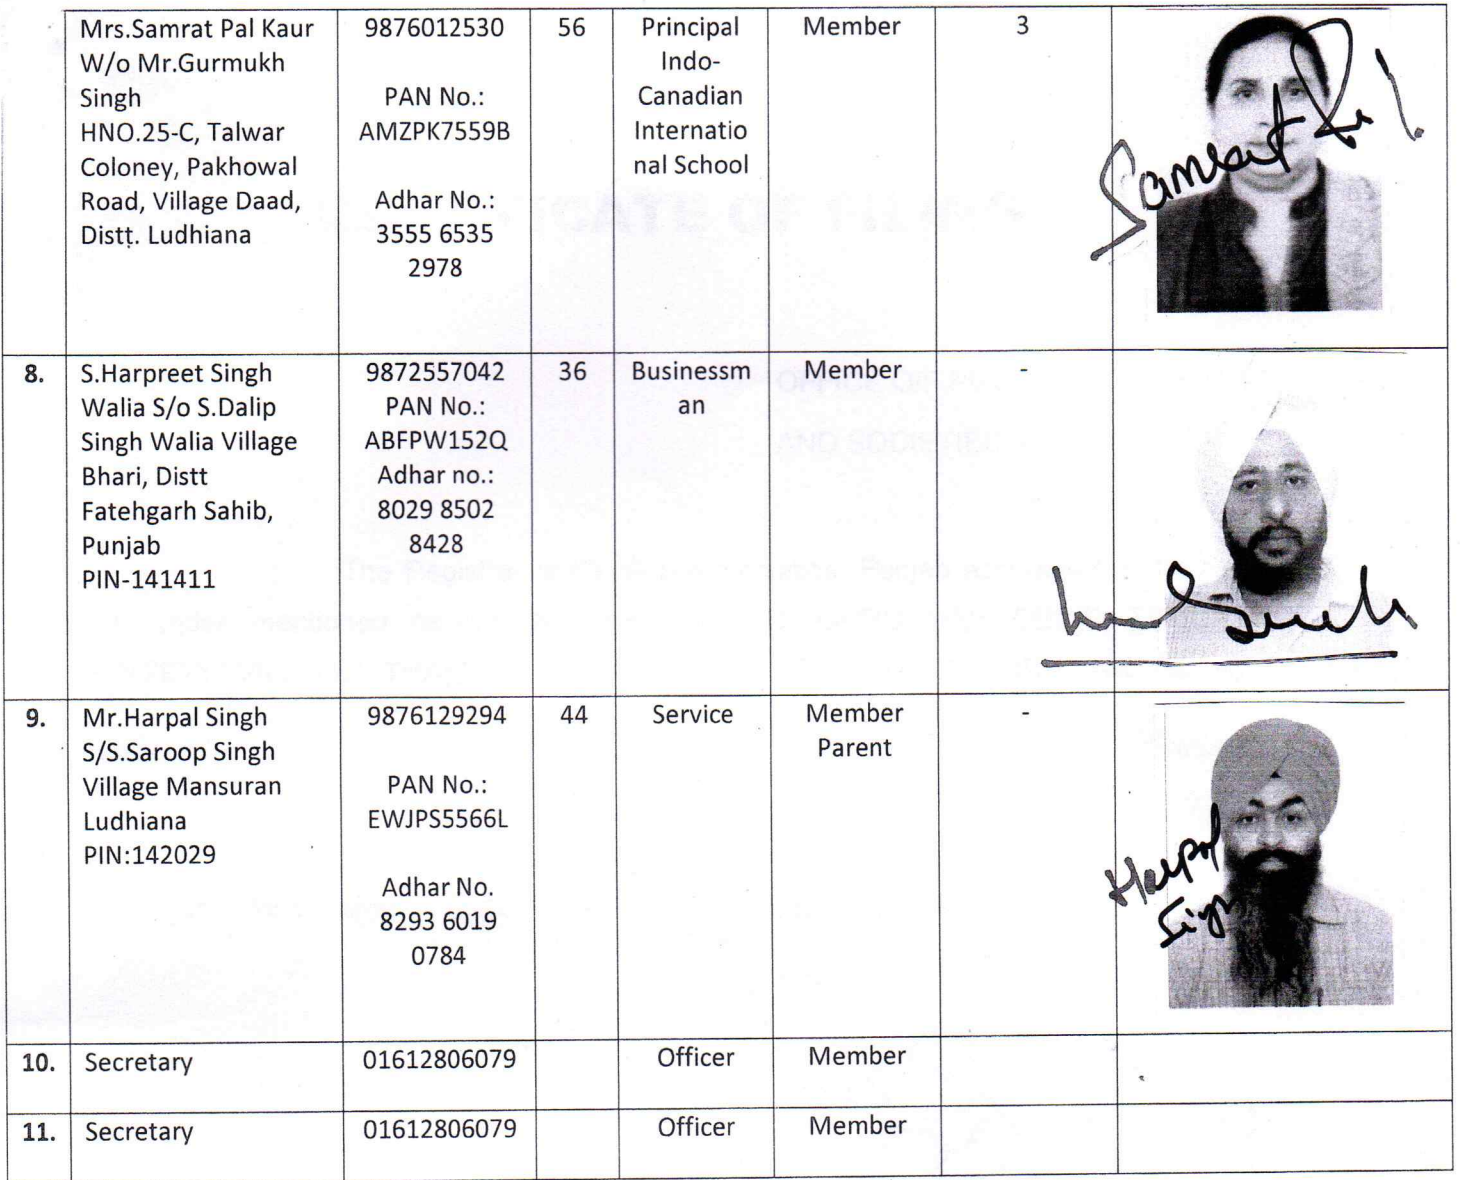 Mrs.Samrat Pal Kaur
W/o Mr.Gurmukh
Singh
HNO.25-C, Talwar
Coloney, Pakhowal
Road, Village Daad,
Distt. Ludhiana
9876012530
PAN No.:
AMZPK7559B
Adhar No.:
3555 6535
2978
56
Principal
Indo-
Canadian
Internatio
nal School
Member
3
Samrat Pal
8.
S.Harpreet Singh
Walia S/o S.Dalip
Singh Walia Village
Bhari, Distt
Fatehgarh Sahib,
Punjab
PIN-141411
9872557042
PAN No.:
ABFPW152Q
Adhar no.:
8029 8502
8428
36
Businessm
an
Member
-
9.
Mr.Harpal Singh
S/S.Saroop Singh
Village Mansuran
Ludhiana
PIN:142029
9876129294
PAN No.:
EWJPS5566L
Adhar No.
8293 6019
0784
44
Service
Member
Parent
-
Harpal
10.
Secretary
01612806079
Officer
Member
11.
Secretary
01612806079
Officer
Member